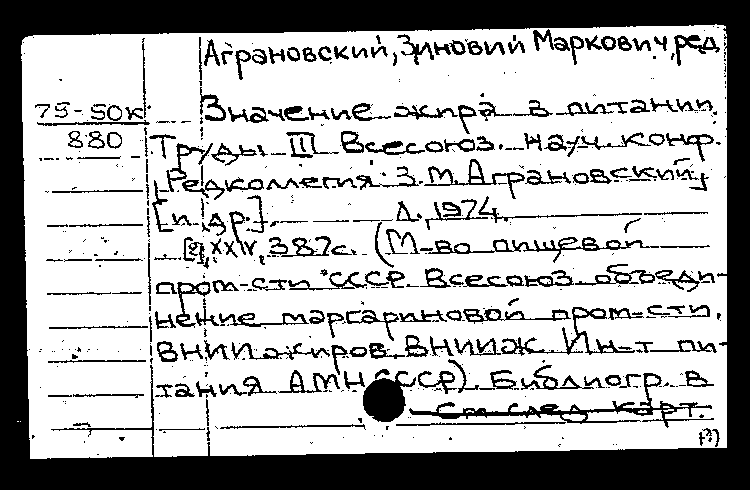 Аграновский, Зиновий Маркович, ред
75-50к Значение жира в питании.
880 Труды III Всесоюз. науч. конф.
[Редколлегия: З.М. Аграновский
[и др.]. Л., 1974.
XXIV, 387с. (М-во пищевой
пром-сти СССР. Всесоюз. объеди-
нение маргариновой пром-сти.
ВНИИ жиров. ВНИИЖ. Ин-т пи-
тания АМН СССР). Библиогр. в
См след карт.